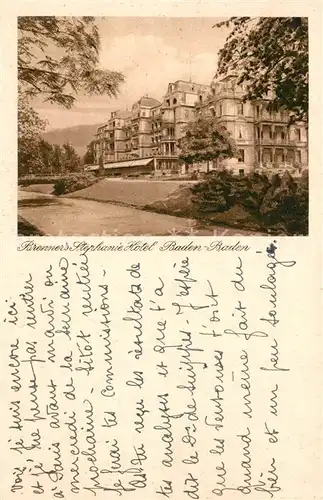 Brenner's Stephanie Hotel Baden-Baden
Vois, je suis encore ici
et je ne pense pas rentrer
à Paris avant mardi ou
mercredi de la semaine
prochaine. Sitôt rentrée
je ferai tes commissions -
As-tu reçu les résultats de
tes analyses et que t'a
dit le Dr de Luippes - J'espère
que les ventouses t'ont
quand même fait du
bien et un peu soulagé.